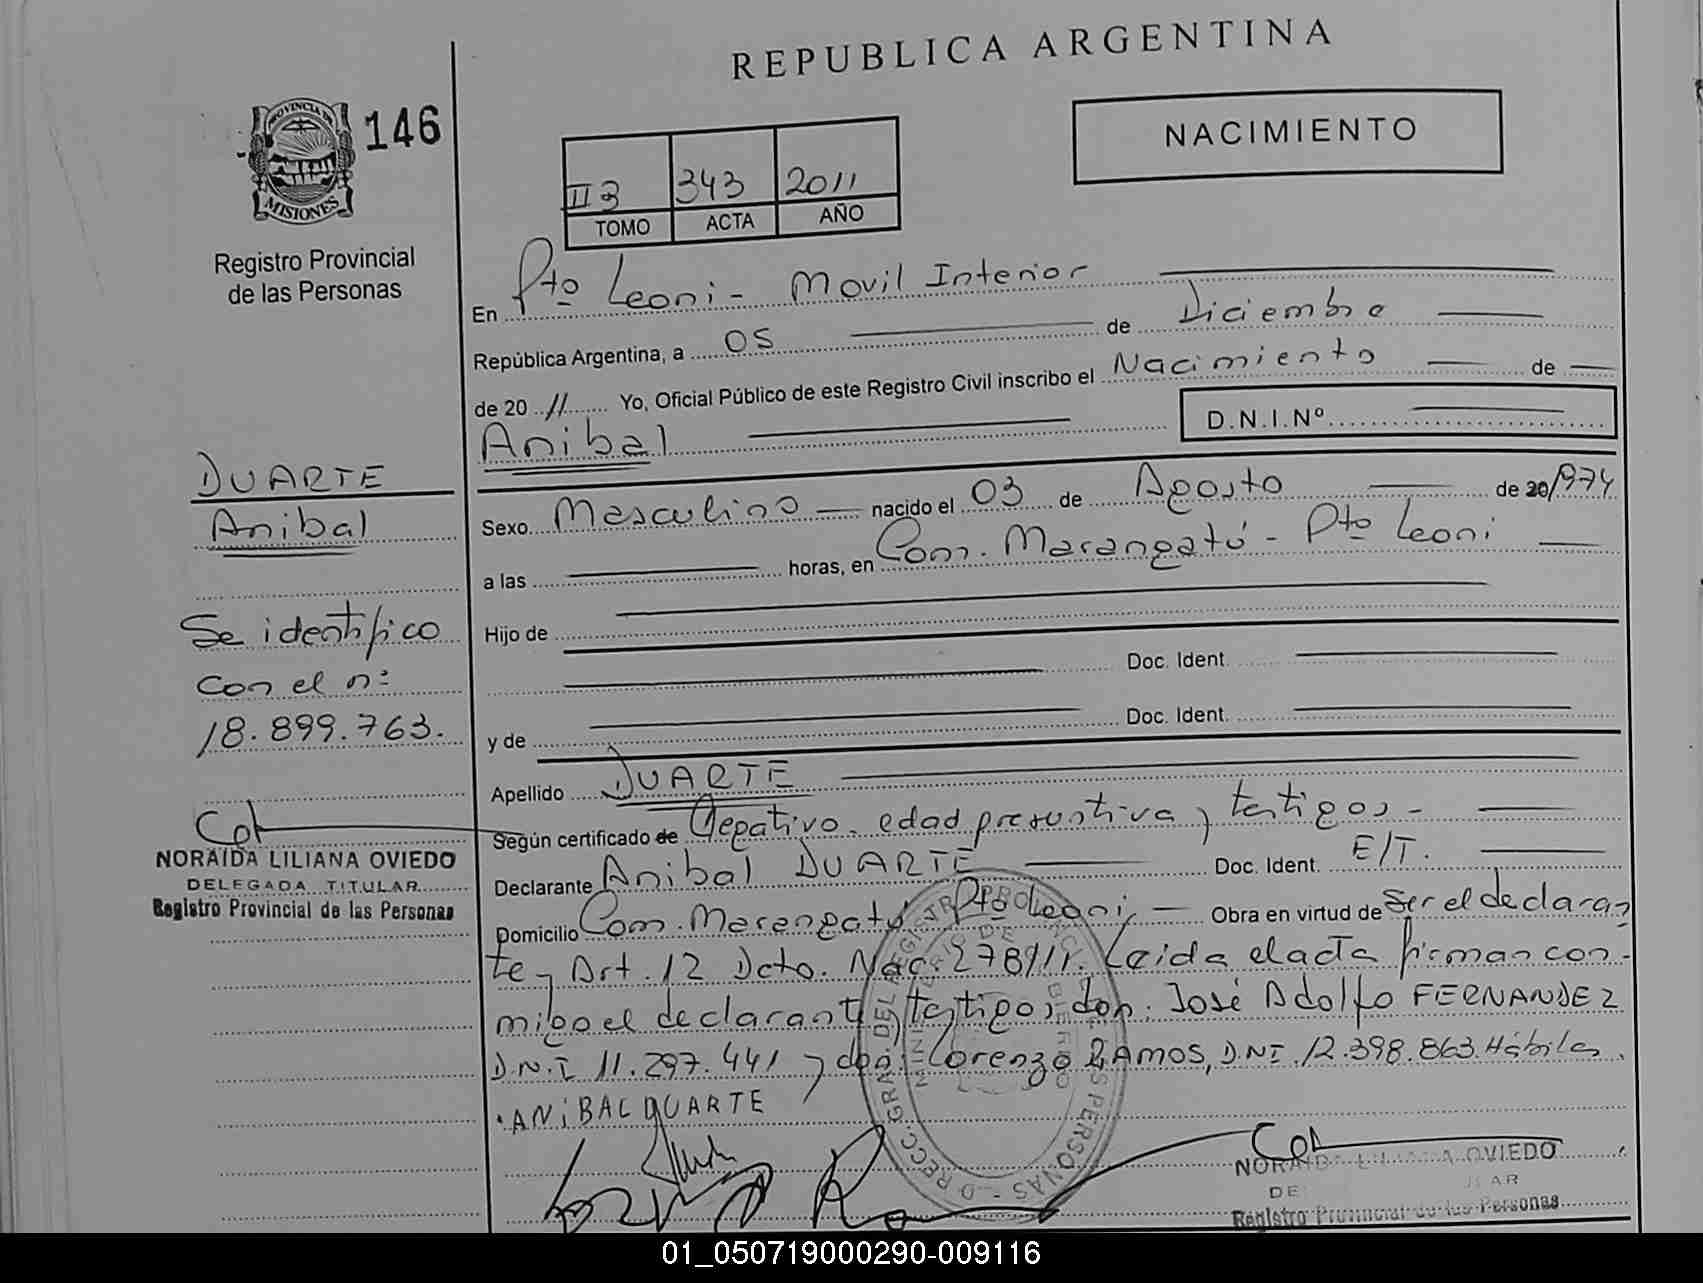 REPUBLICA ARGENTINA
PROVINCIA DE
MISIONES
146
NACIMIENTO
II 3 343 2011
TOMO ACTA AÑO
Registro Provincial
de las Personas
En Pto Leoni - Movil Interior
República Argentina, a 05 de Diciembre
de 2011 Yo, Oficial Público de este Registro Civil inscribo el Nacimiento de
Anibal
D.N.I.Nº
DUARTE
Anibal
Se identifico
con el nº
18.899.763.
NORAIDA LILIANA OVIEDO
DELEGADA TITULAR
Registro Provincial de las Personas
Sexo Masculino nacido el 03 de Agosto de 20/974
a las horas, en Com. Marangatú - Pto Leoni
Hijo de
Doc. Ident.
y de Doc. Ident.
Apellido DUARTE
Según certificado de Negativo, edad presuntiva y testigos -
Declarante Anibal DUARTE Doc. Ident. E/T.
Domicilio Com. Marangatú Pto Leoni, Obra en virtud de ser el declaran
te - Art. 12 Dcto. Nac. 278/11. Leida el acta firman con-
migo el declarante y testigos don: José Adolfo FERNANDEZ
D.N.I 11.297.441 y don: Lorenzo RAMOS, D.NI. 12.398.863. Hábiles.
ANiBAL DUARTE
NORAIDA LILIANA OVIEDO
Registro Provincial de las Personas
01_050719000290-009116